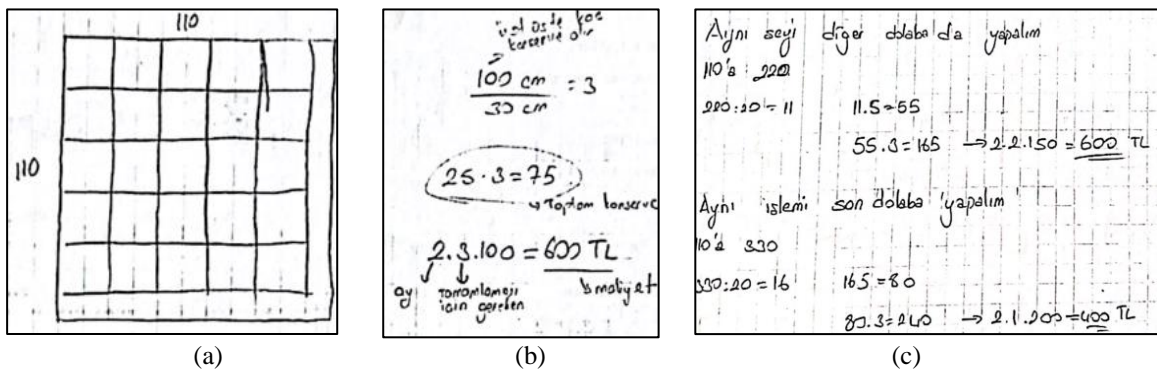 110
110
(a)
üst üste kaç
konserve olur
100 cm
30 cm
= 3
25 . 3 = 75
Toplam konserve
2.3.100 = 600 TL
ay
tamamlamaji
için gereken
maliyet
(b)
Aynı şeyi diğer dolaba da yapalım
110'a 220
220:20 = 11 11.5=55
55.3=165 → 2.2.150 = 600 TL
Aynı işlemi son dolaba yapalım
110'a 330
330:20=16 16.5=80
80.3=240 → 2.1.200=400 TL
(c)